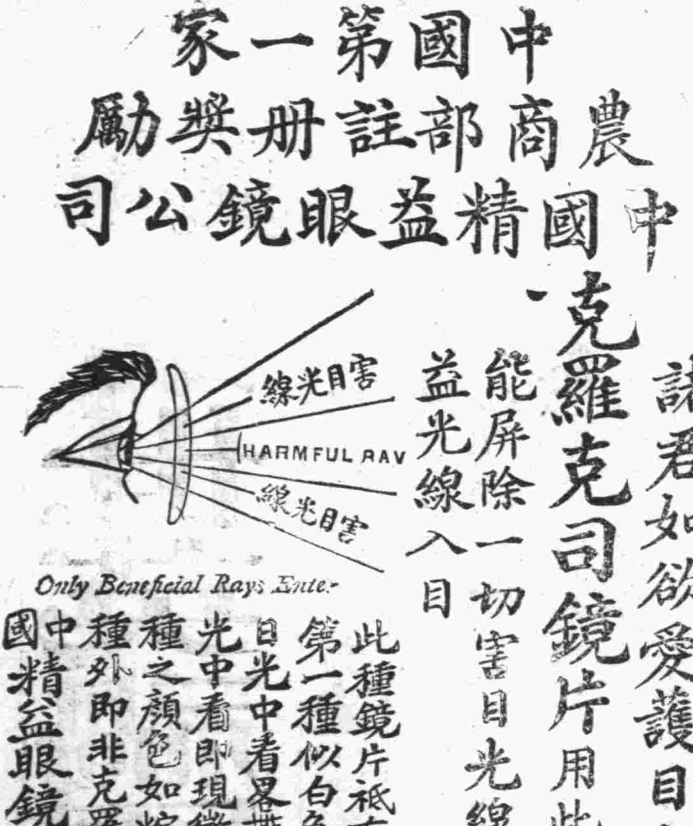 中國第一家
農商部註册獎勵
中國精益眼鏡公司
君如欲愛護目
克羅克司鏡片用此
能屏除一切害目光線
益光線入目
害目光線
HARMFUL RAY
害目光線
Only Beneficial Rays Enter
此種鏡片祗
第一種似白色
日光中看畧帶
光中看即現微
種之顏色如
種外即非克羅
中國精益眼鏡